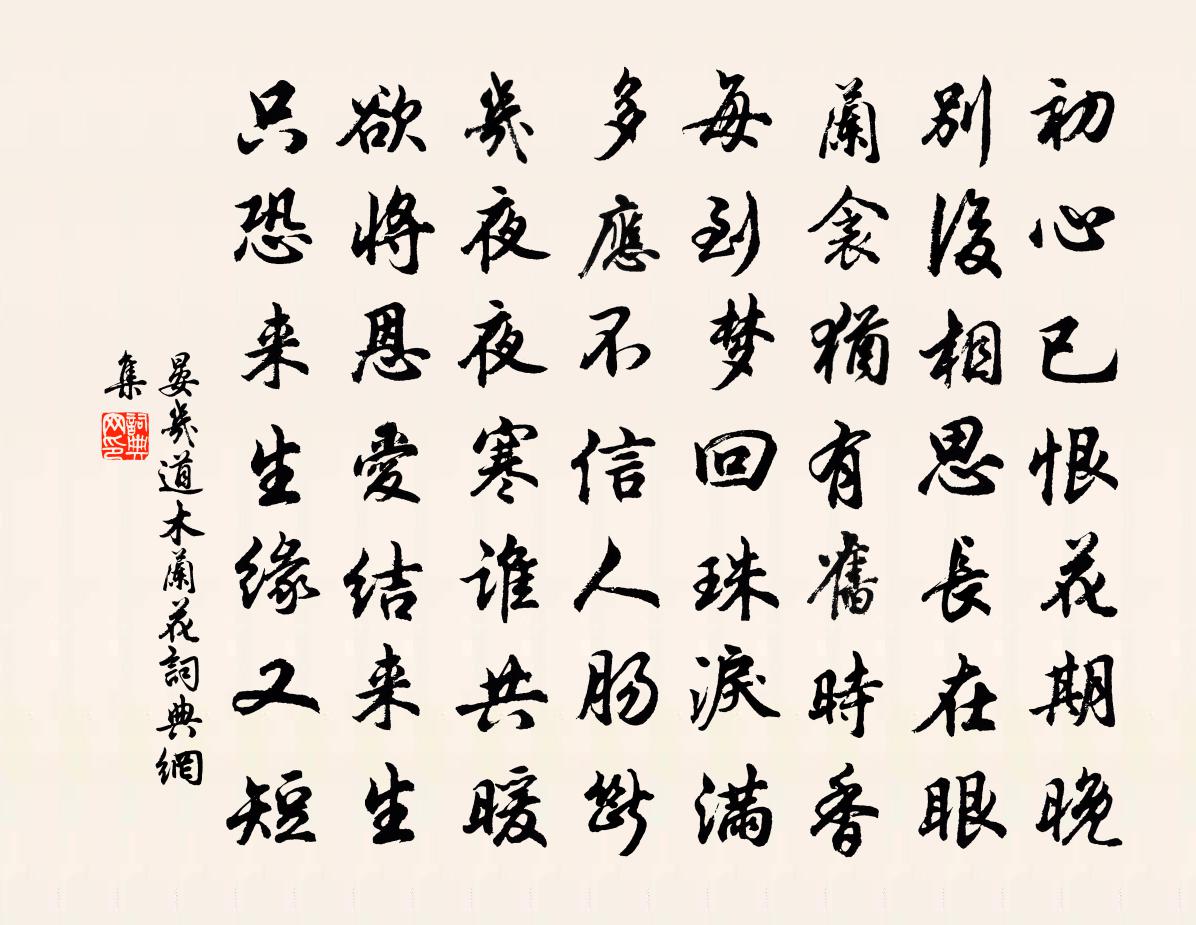 初心已恨花期晚
別後相思長在眼
蘭衾猶有舊時香
每到梦回珠淚滿
多應不信人腸斷
幾夜夜寒誰共暖
欲將恩愛結来生
只恐来生緣又短
晏幾道木蘭花詞典網
集
詞典
网印